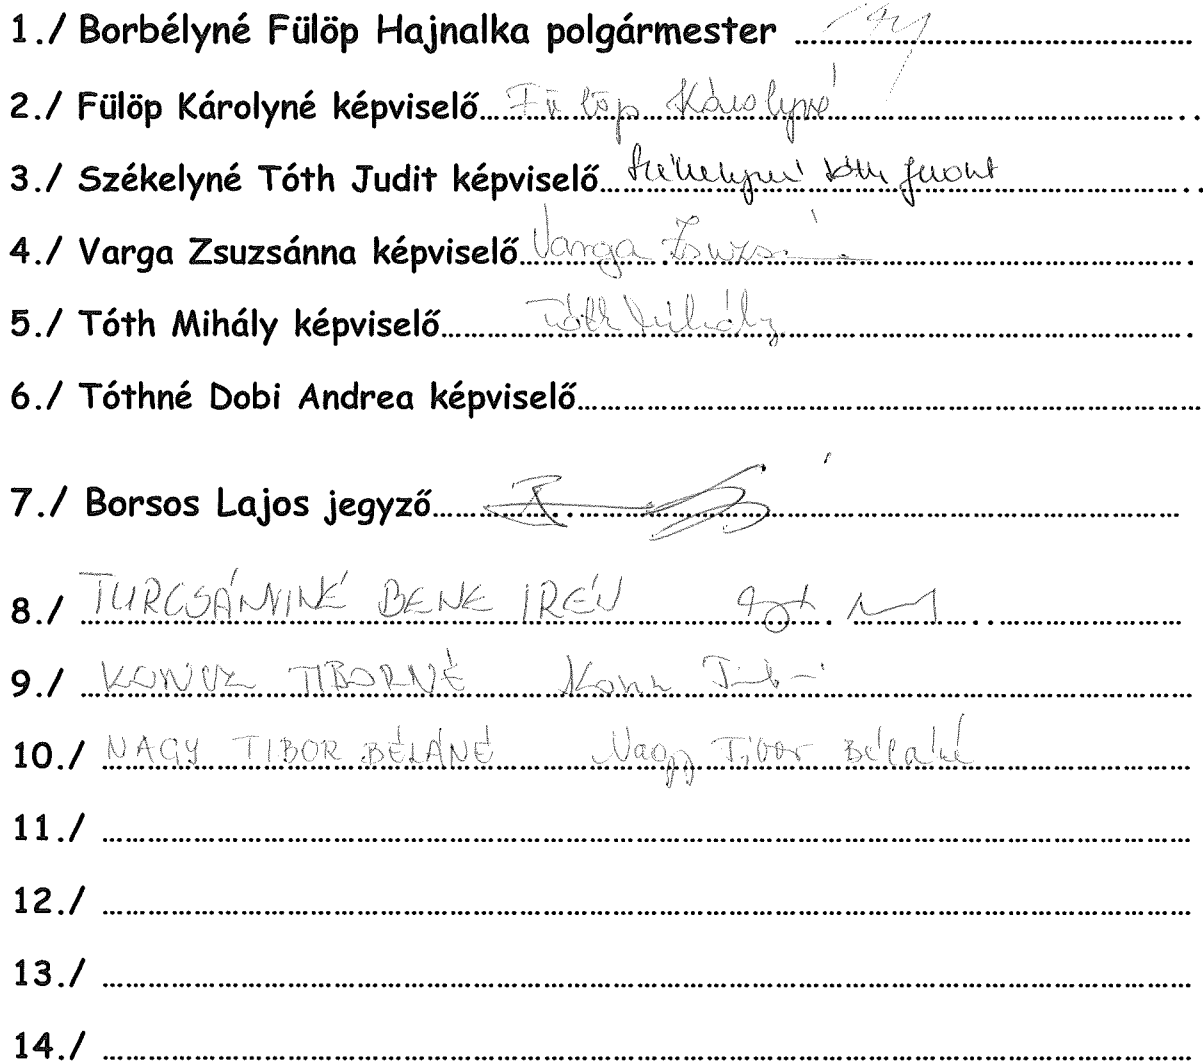 1./ Borbélyné Fülöp Hajnalka polgármester
2./ Fülöp Károlyné képviselő Fülöp Károlyné
3./ Székelyné Tóth Judit képviselő Székelyné Tóth Judit
4./ Varga Zsuzsánna képviselő Varga Zsuzsánna
5./ Tóth Mihály képviselő Tóth Mihály
6./ Tóthné Dobi Andrea képviselő
7./ Borsos Lajos jegyző
8./ TURCSÁNNINÉ BENE IRÉN
9./ KONCZ TIBORNÉ Koncz Tiborné
10./ NAGY TIBOR BÉLÁNÉ Nagy Tibor Béláné
11./
12./
13./
14./